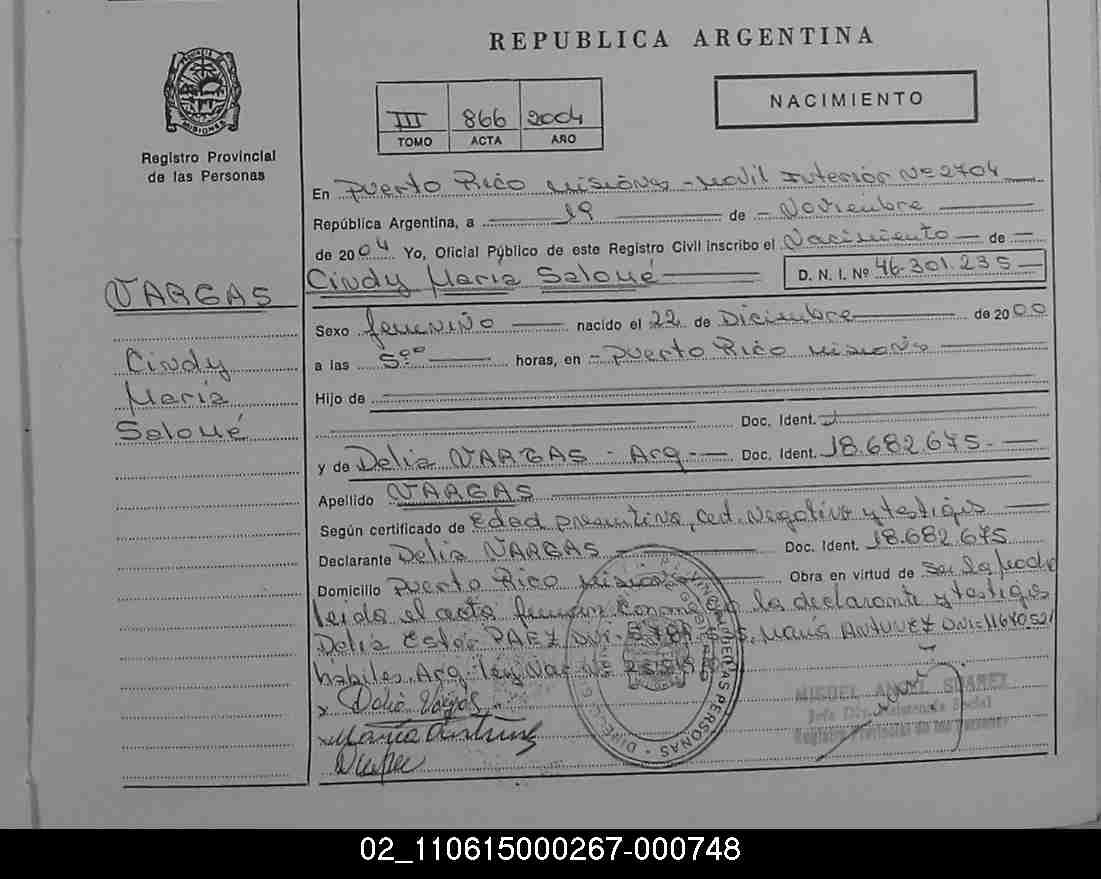 REPUBLICA ARGENTINA
PROVINCIA DE MISIONES
Registro Provincial
de las Personas
III 866 2004
TOMO ACTA AÑO
NACIMIENTO
En Puerto Rico Misiones - Movil Interior Nº 2704
República Argentina, a 19 de Noviembre
de 2004 Yo, Oficial Público de este Registro Civil inscribo el Nacimiento de
VARGAS
Cindy María Salomé D. N. I. Nº 46.301.235
Cindy
María
Salomé
Sexo femenino nacido el 22 de Diciembre de 2000
a las 5 00 horas, en Puerto Rico Misiones
Hijo de
Doc. Ident.
y de Delia VARGAS - Arg - Doc. Ident. 18.682.675
Apellido VARGAS
Según certificado de Edad presuntiva, Cert. Negativo y testigos
Declarante Delia VARGAS Doc. Ident. 18.682.675
Domicilio Puerto Rico Misiones Obra en virtud de Ser la Madre
leido el acta firman conmigo la declarante y testigos
Delia PAEZ DNI María ANTUNEZ DNI
hábiles. Arg. ley Nac Nº
Delia Vargas
María Antunez
MIGUEL ANGEL SUAREZ
Registro Provincial de las Personas
PERSONAS
02_110615000267-000748